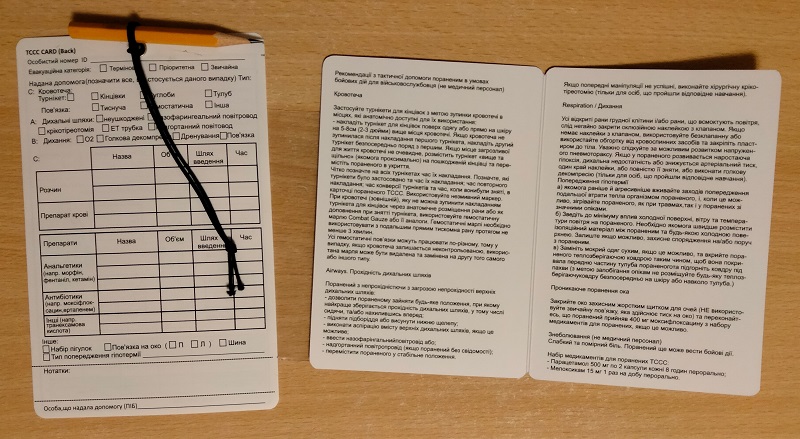 TCCC CARD (Back)
Особистий номер ID
Евакуаційна категорія: Терміно Пріоритетна Звичайна
Надана допомога(позначити все, стосується даного випадку) Тип:
C: Кровотеча:
Турнікет: Кінцівки углоби Тулуб
Пов'язка: Тиснуча мостатична Інша
A: Дихальні шляхи: неушкоджені азофарингеальний повітровод
крікотиреотомія ЕТ трубка гортанний повітовод
B: Дихання: О2 Голкова декомпре Дренування Пов'язка
C: Назва Об' Шлях введення Час
Розчин
Препарат крові
Препарати Назва Об'єм Шлях введення Час
Анальгетики
(напр. морфін,
фентаніл, кетамін)
Антибіотики
(напр. моксіфлок-
сацин,ертапенем)
Інші (напр.
транексамова
кислота)
Інше:
Набір пігулок Пов'язка на око ( П Л ) Шина
Тип попередження гіпотермії
Нотатки:
Особа,що надала допомогу (ПІБ)
Рекомендації з тактичної допомоги пораненим в умовах
бойових дій для військовослужбовця (не медичний персонал)
Кровотеча
Застосуйте турнікети для кінцівок з метою зупинки кровотечі в
місцях, які анатомічно доступні для їх використання:
- накладіть турнікет для кінцівок поверх одягу або прямо на шкіру
на 5-8см (2-3 дюйми) вище місця кровотечі. Якщо кровотеча не
зупинилася після накладання першого турнікета, накладіть другий
турнікет безпосередньо поряд з першим. Якщо місце загрозливої
для життя кровотечі не очевидне, розмістіть турнікет «вище та
щільно» (якомога проксимально) на пошкодженій кінцівці та пере-
містіть пораненого в укриття.
Чітко позначте на всіх турнікетах час їх накладання. Позначте, які
турнікети було застосовано та час їх накладання; час повторного
накладання; час конверсії турнікетів та час, коли вонибули зняті, в
карточці пораненого ТССС. Використовуйте незмивний маркер.
При кровотечі (зовнішній), яку не можна зупинити накладанням
турнікета для кінцівок через анатомічне розміщення рани або як
доповнення при знятті турнікета, використовуйте гемостатичну
марлю Combat Gauze або її аналоги. Гемостатичні марлі необхідно
використовувати з подальшим прямим тисконна рану протягом не
менше 3 хвилин.
Усі гемостатичні пов'язки можуть працювати по-різному, тому у
випадку, якщо кровотеча залишається неконтрольованою, викорис-
тана марля може бути видалена та замінена на другу того самого
або іншого типу.
Airways. Прохідність дихальних шляхів
Поранений з непрохідністю з загрозою непрохідності верхніх
дихальних шляхів:
- дозволити пораненому зайняти будь-яке положення, при якому
найкраще зберігається прохідність дихальних шляхів, у тому числі
сидячи, та/або нахилившись вперед;
- підняти підборіддя або висунути нижню щелепу;
- виконати аспірацію вмісту верхніх дихальних шляхів, якщо це
можливо;
- ввести назофарингіальнийповітровід або;
- надгортанний повітропровід (якщо поранений без свідомості);
- перемістити пораненого у стабільне положення.
Якщо попередні маніпуляції не успішні, виконайте хірургічну кріко-
тиреотомію (тільки для осіб, що пройшли відповідне навчання).
Respiration / Дихання
Усі відкриті рани грудної клітини і/або рани, що всмоктують повітря,
слід негайно закрити оклюзійною наклейкою з клапаном. Якщо
немає наклейки з клапаном, використовуйте безклапанну або
використайте обгортку від кровоспинних засобів та закріпіть пласт-
ирем до тіла. Уважно слідкуйте за можливим розвитком напружен-
ого пневмотораксу. Якщо у пораненого розвивається наростаюча
гіпоксія, дихальна недостатність або знижується артеріальний тиск,
один край наклейки, або повністю її зняти, або виконати голкову
декомпресію (тільки для осіб, що пройшли відповідне навчання).
Попередження гіпотермії
а) якомога раніше й агресивніше вживайте заходів попередження
подальшої втрати тепла організмом пораненого, і, коли це мож-
ливо, зігрівайте пораненого, як при травмах,так і у поранених зі
значними опіками.
б) Зведіть до мінімуму вплив холодної поверхні, вітру та темпера-
тури повітря на пораненого. Необхідно якомога швидше розмістити
ізоляційний матеріал між пораненим та будь-якою холодною повер-
хнею. Залиште якщо можливо, захисне спорядження на/або поруч
з пораненим.
в) Замініть мокрий одяг сухим, якщо це можливо, та вкрийте пора-
неного теплозберігаючою ковдрою таким чином, щоб вона покри-
вала передню частину тулуба пораненогота підгорніть ковдру під
пахви (з метою запобігання опікам не розміщуйте будь-яку теплоз-
берігаючукoвдру безпосередньо на шкіру або навколо тулуба.)
Проникаюче поранення ока
Закрийте око захисним жорстким щитком для очей (НЕ використо-
вуйте звичайну пов'язку, яка здійснює тиск на око) та переконайт-
есь, що поранений прийняв 400 мг моксіфлоксацину з набору
медикаментів для поранених, якщо це можливо.
Знеболювання (не медичний персонал)
Слабкий та помірний біль. Поранений ще може вести бойові дії.
Набір медикаментів для поранених ТССС:
- Парацетамол 500 мг по 2 капсули кожні 8 годин перорально;
- Мелоксикам 15 мг 1 раз на добу перорально.